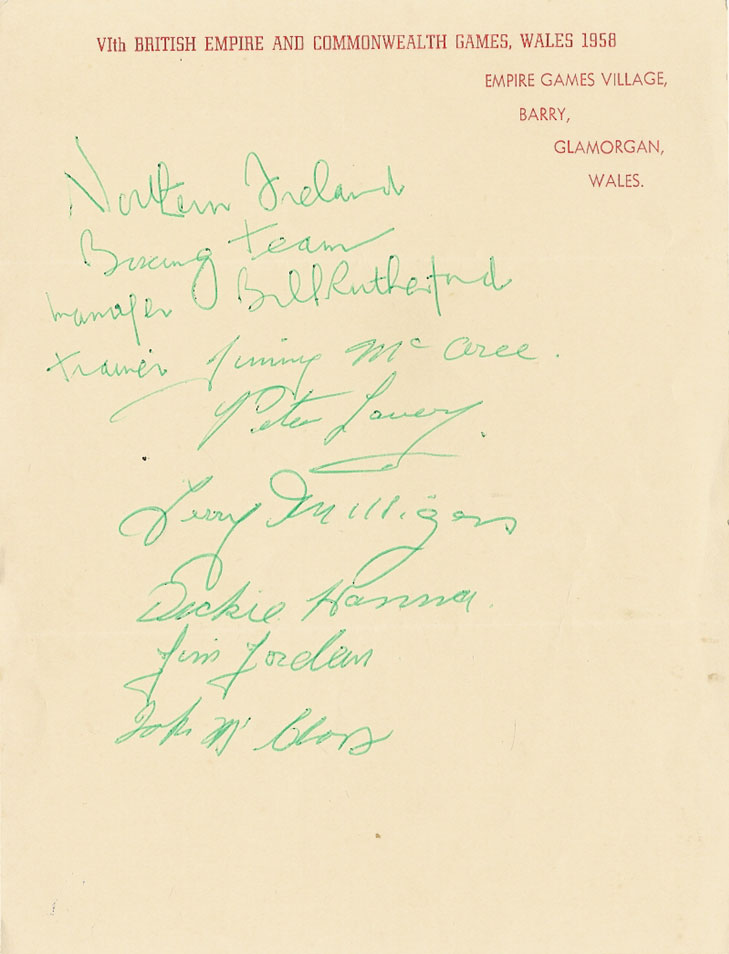 VIth BRITISH EMPIRE AND COMMONWEALTH GAMES, WALES 1958
EMPIRE GAMES VILLAGE,
BARRY,
GLAMORGAN,
WALES.
Northern Ireland
Boxing team
manager Bill Rutherford
trainer Jimmy Mc Aree.
Peter Lavery
Terry Milligan
Dickie Hanna.
Jim Jordan